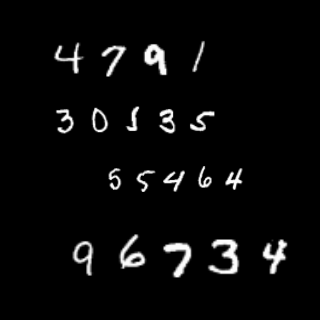 4 7 9 1
3 0 5 3 5
5 5 4 6 4
9 6 7 3 4